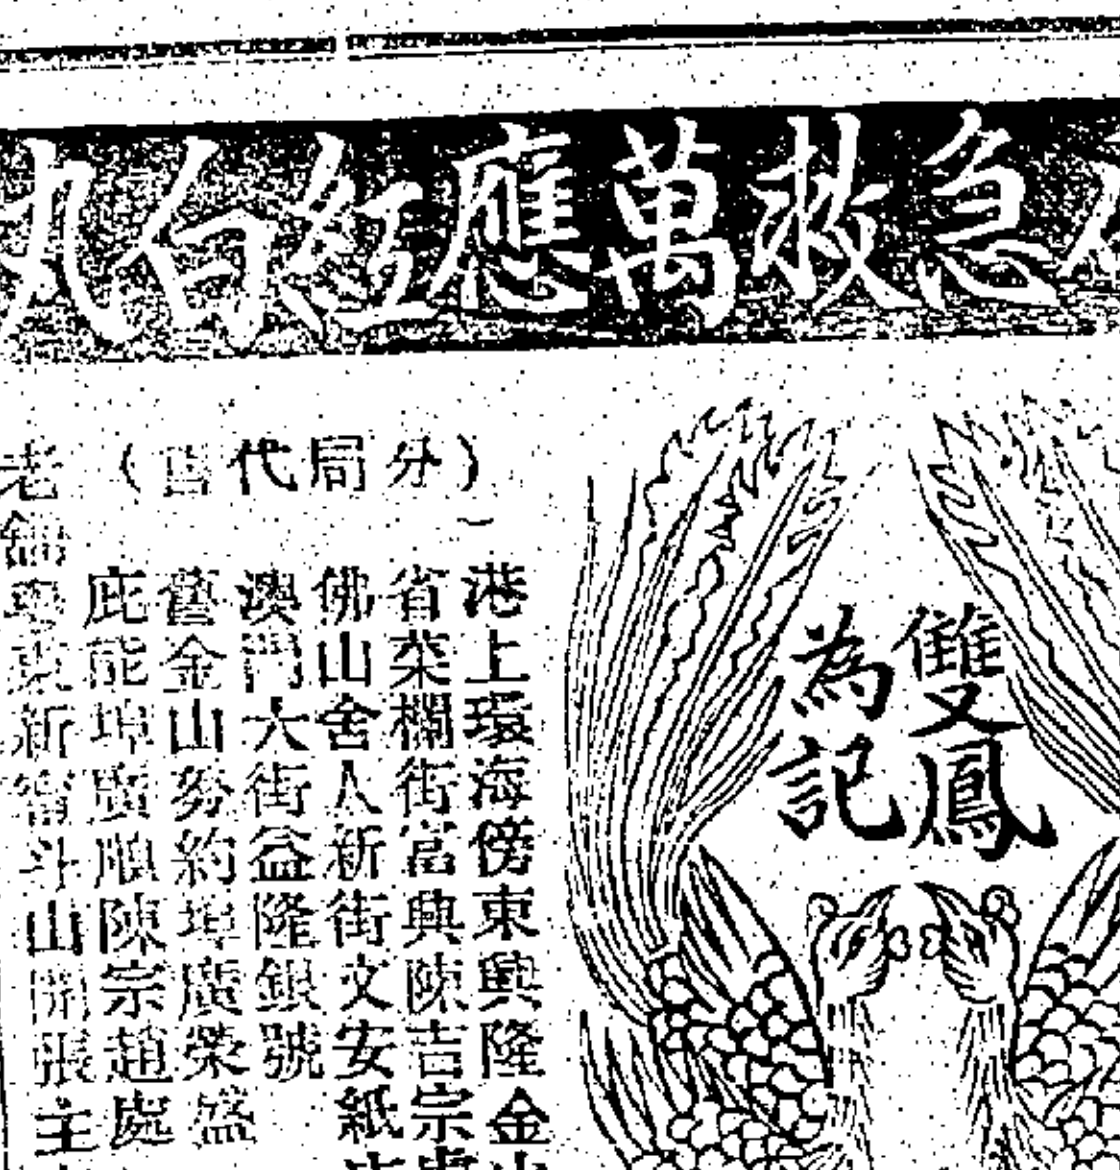 急救萬應紅白丸
雙鳳
為記
（分局代售）
港上環海傍東興隆金山
省菜欄街富興陳吉宗
佛山舍人新街文安紙
澳門大街益隆銀號
舊金山勞約埠廣榮盛
庇能埠廣順陳宗趙處
老舖
新
斗山開張主